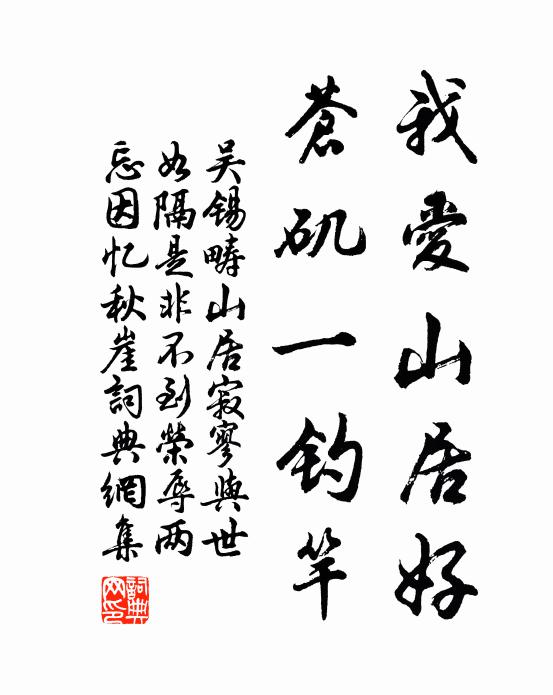 我愛山居好
蒼矶一钓竿
吴锡畴山居寂寥與世
如隔是非不到榮辱两
忘因忆秋崖詞典網集
詞典
网印